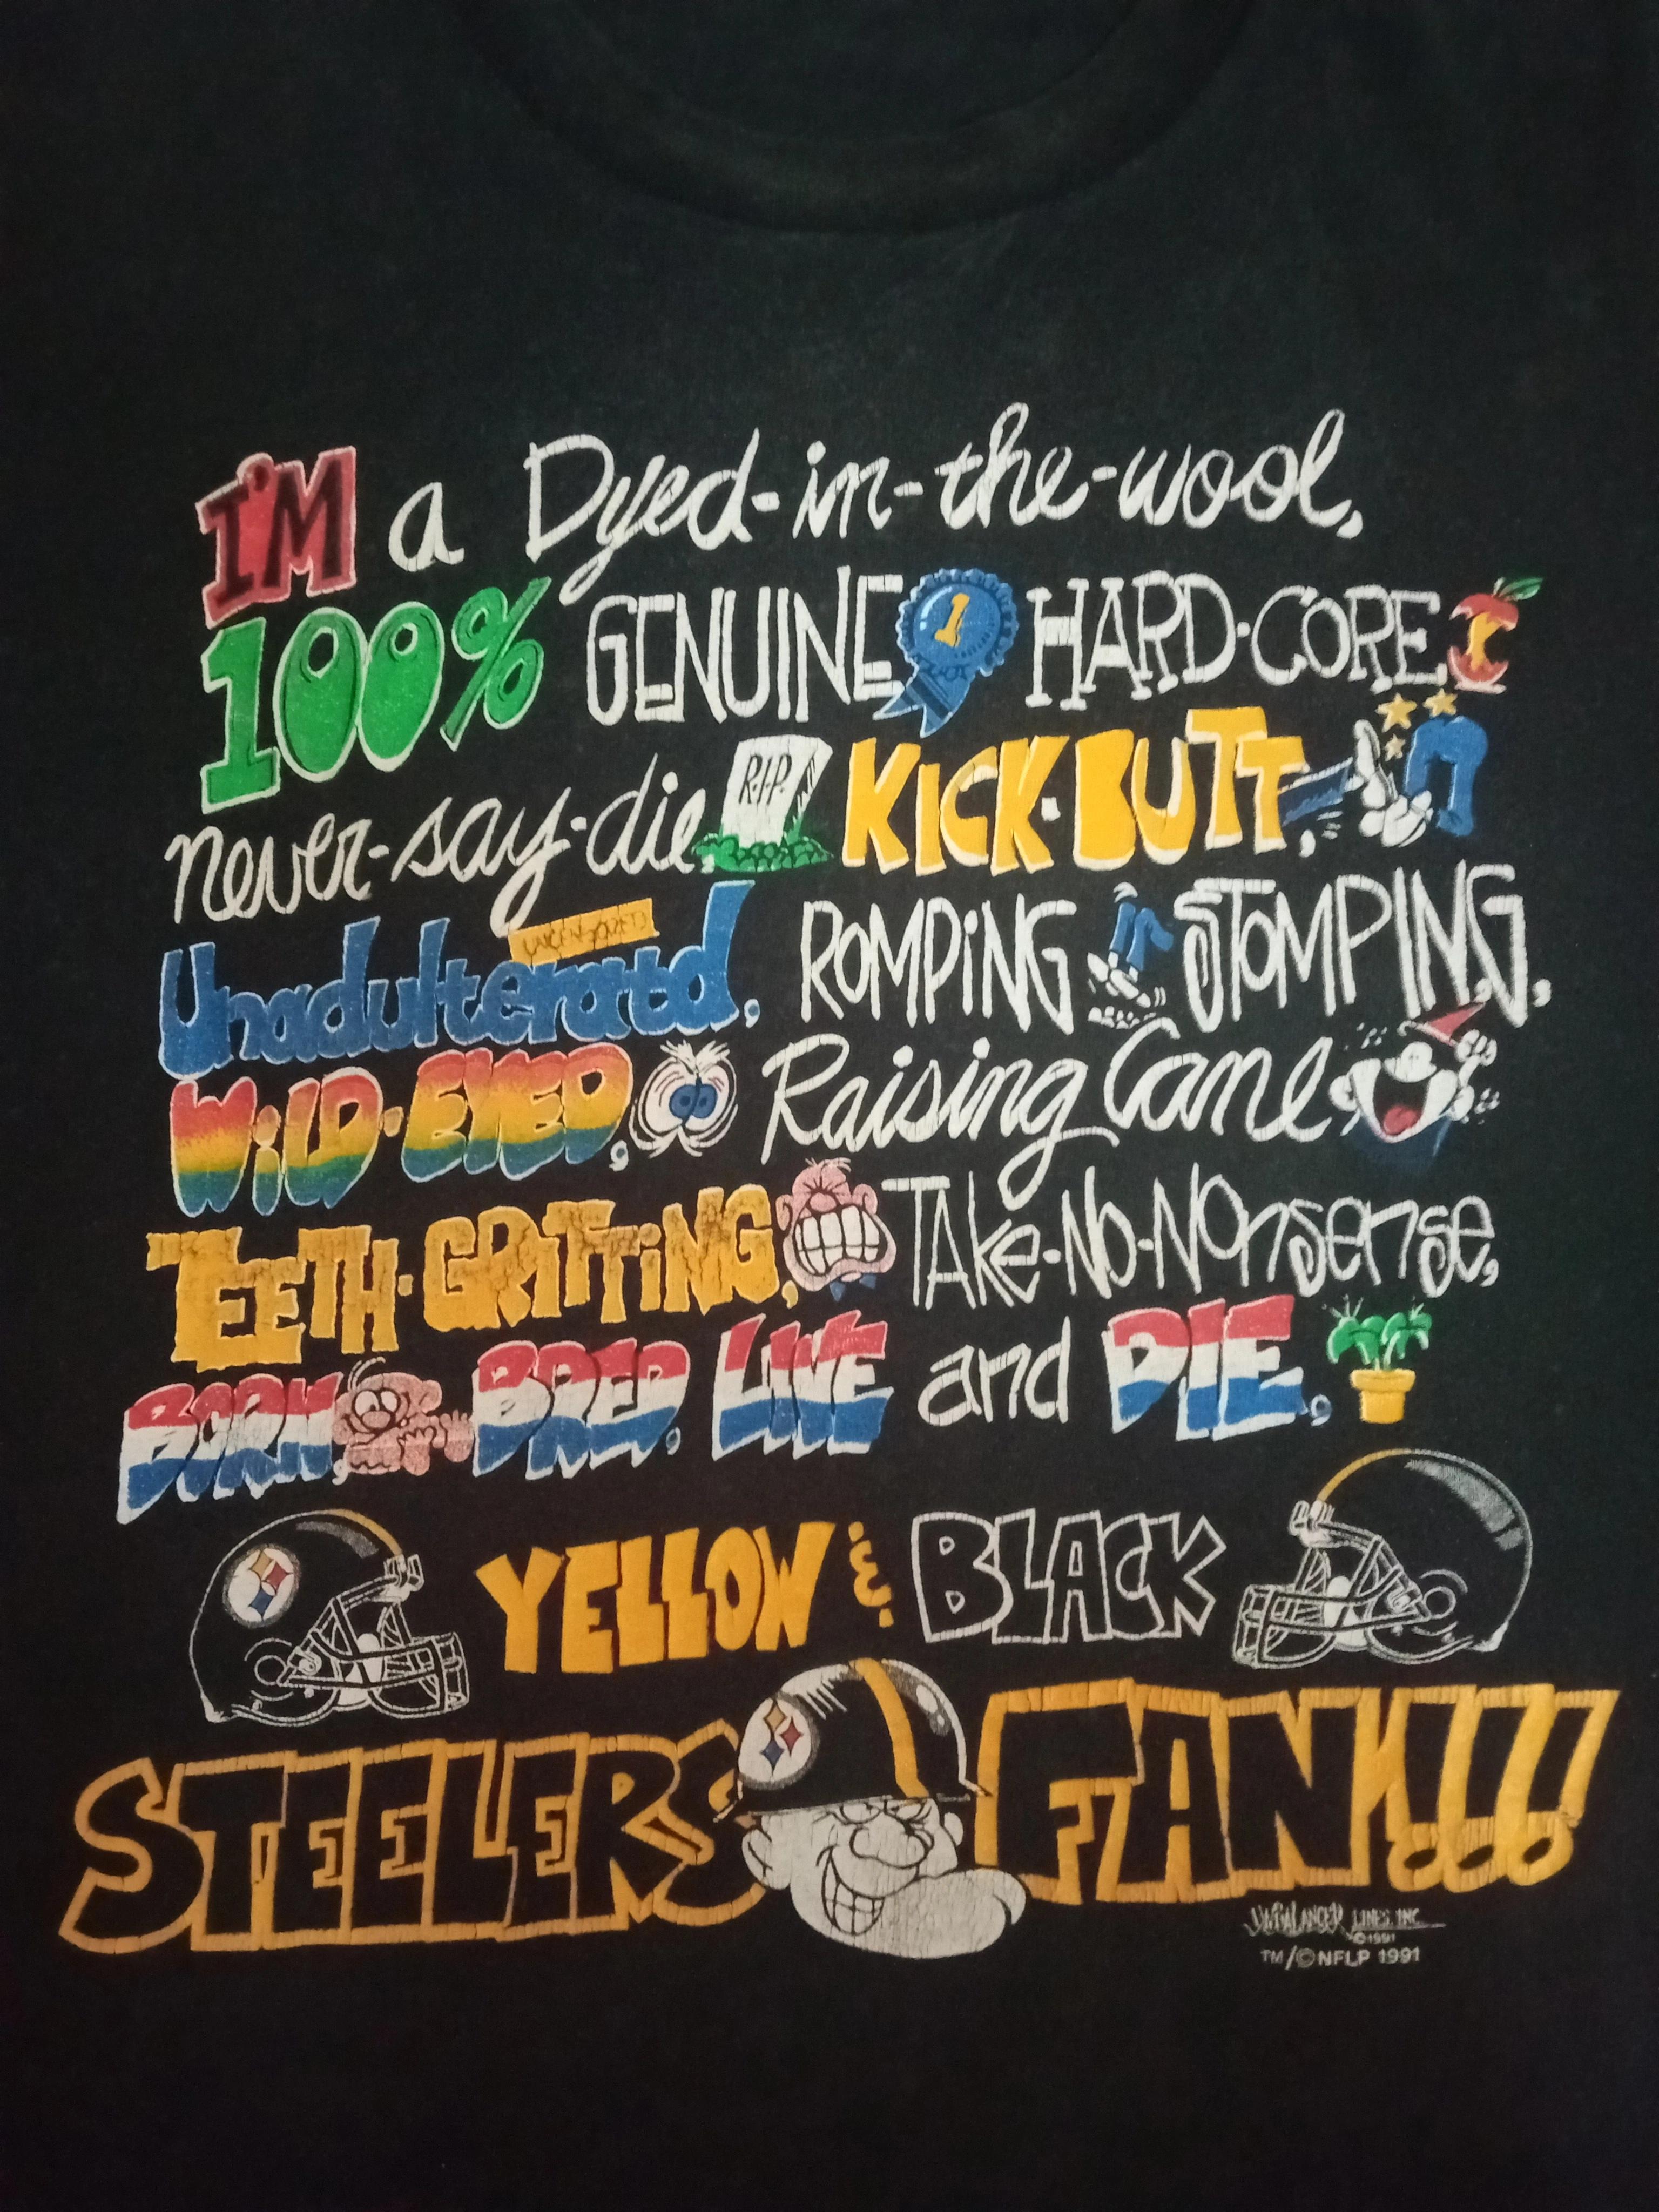 I'M a Dyed-in-the-wool,
100% GENUINE 1 HARD-CORE,
never-say-die, R.I.P. KICK-BUTT,
UNCENSORED
Unadulterated, ROMPiNG STOMPING,
WiLD-EYED, Raising Cane
TEETH-GRiTTiNG, TAKe-No-NOnsense,
BORN, BRED, LIVE and DIE,
YELLOW & BLACK
STEELERS FAN!!!
LINES, INC.
©1991
TM/©NFLP 1991